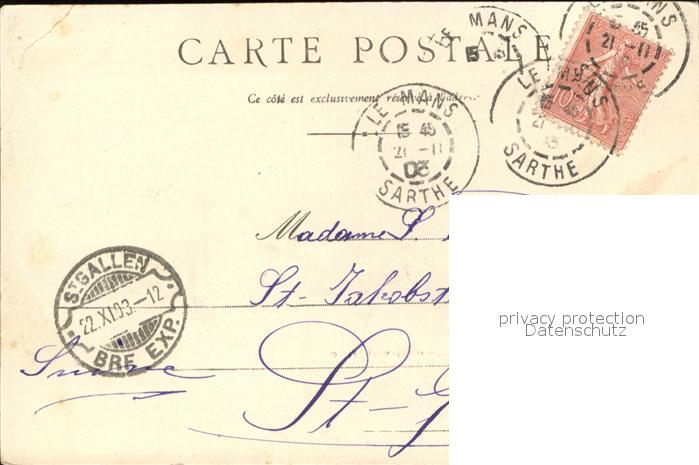 CARTE POSTALE
Ce côté est exclusivement réservé à l'adresse
LE MANS
15 45
21 -11
03
SARTHE
LE MANS
SARTHE
10
Madame S.
St. GALLEN
22.XI.03.-12
BRF. EXP.
St-Jakobst
Suisse
St-G
privacy protection
Datenschutz